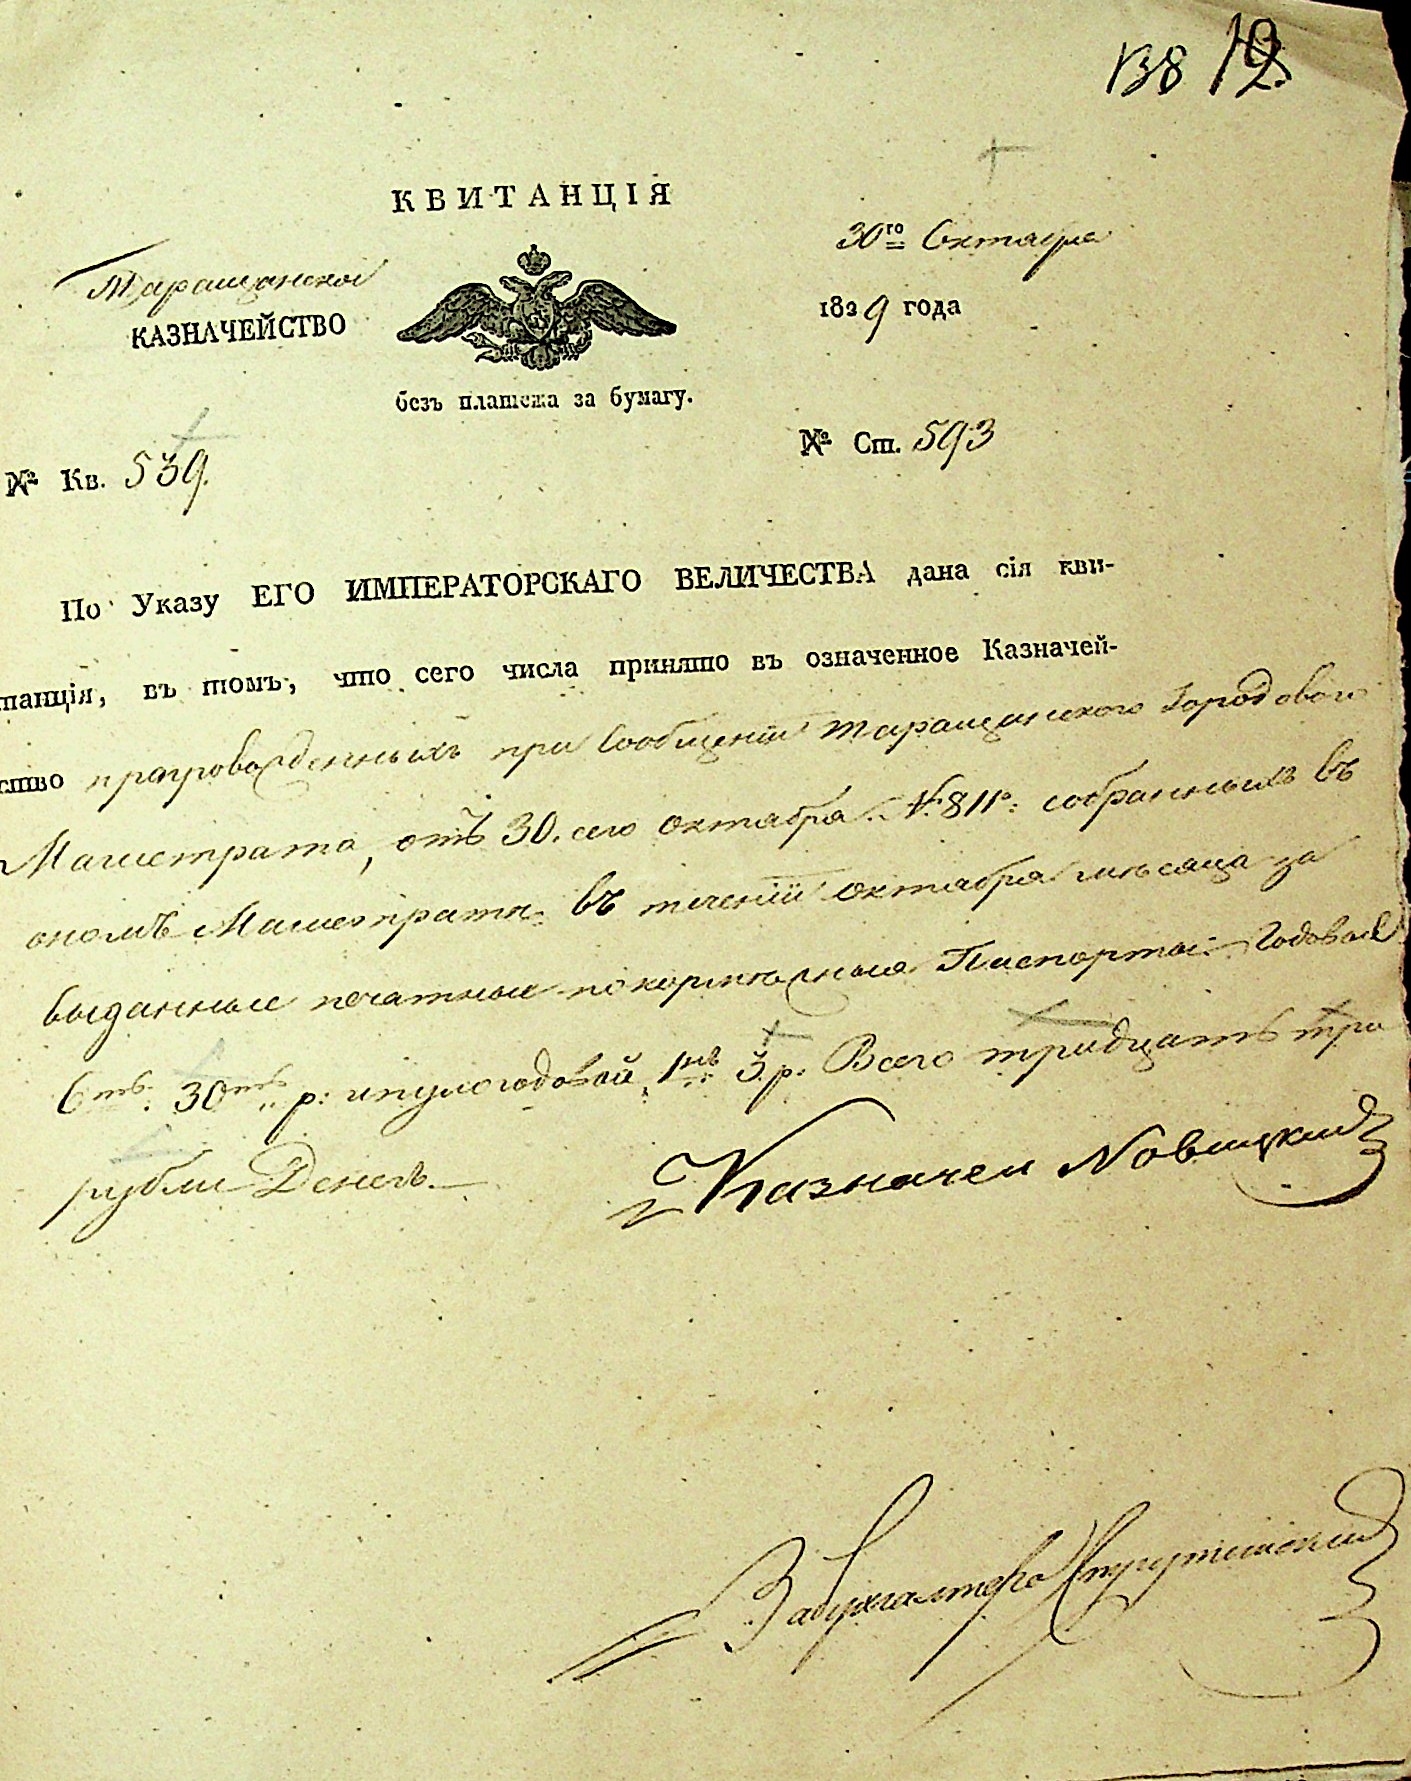 138 12
КВИТАНЦІЯ
Таращанское
КАЗНАЧЕЙСТВО
30го Октября
1829 года
безъ платежа за бумагу.
№ Кв. 539.
№ Ст. 593
По Указу ЕГО ИМПЕРАТОРСКАГО ВЕЛИЧЕСТВА дана сія кви-
танція, въ томъ, что сего числа принято въ означенное Казначей-
ство препровожденныхъ при Сообщеніи Таращанского Городового
Магистрата, отъ 30. сего октября №811º: собранныхъ въ
ономъ Магистратѣ въ теченіи октября мѣсяца за
выданные печатные покормежные Паспорты: Годовые
6ть. 30ть р: и пулогодовой 1нъ 3. р. Всего тридцать три
рубли Денегъ.
Казначеи Новицкий
За бухгалтера